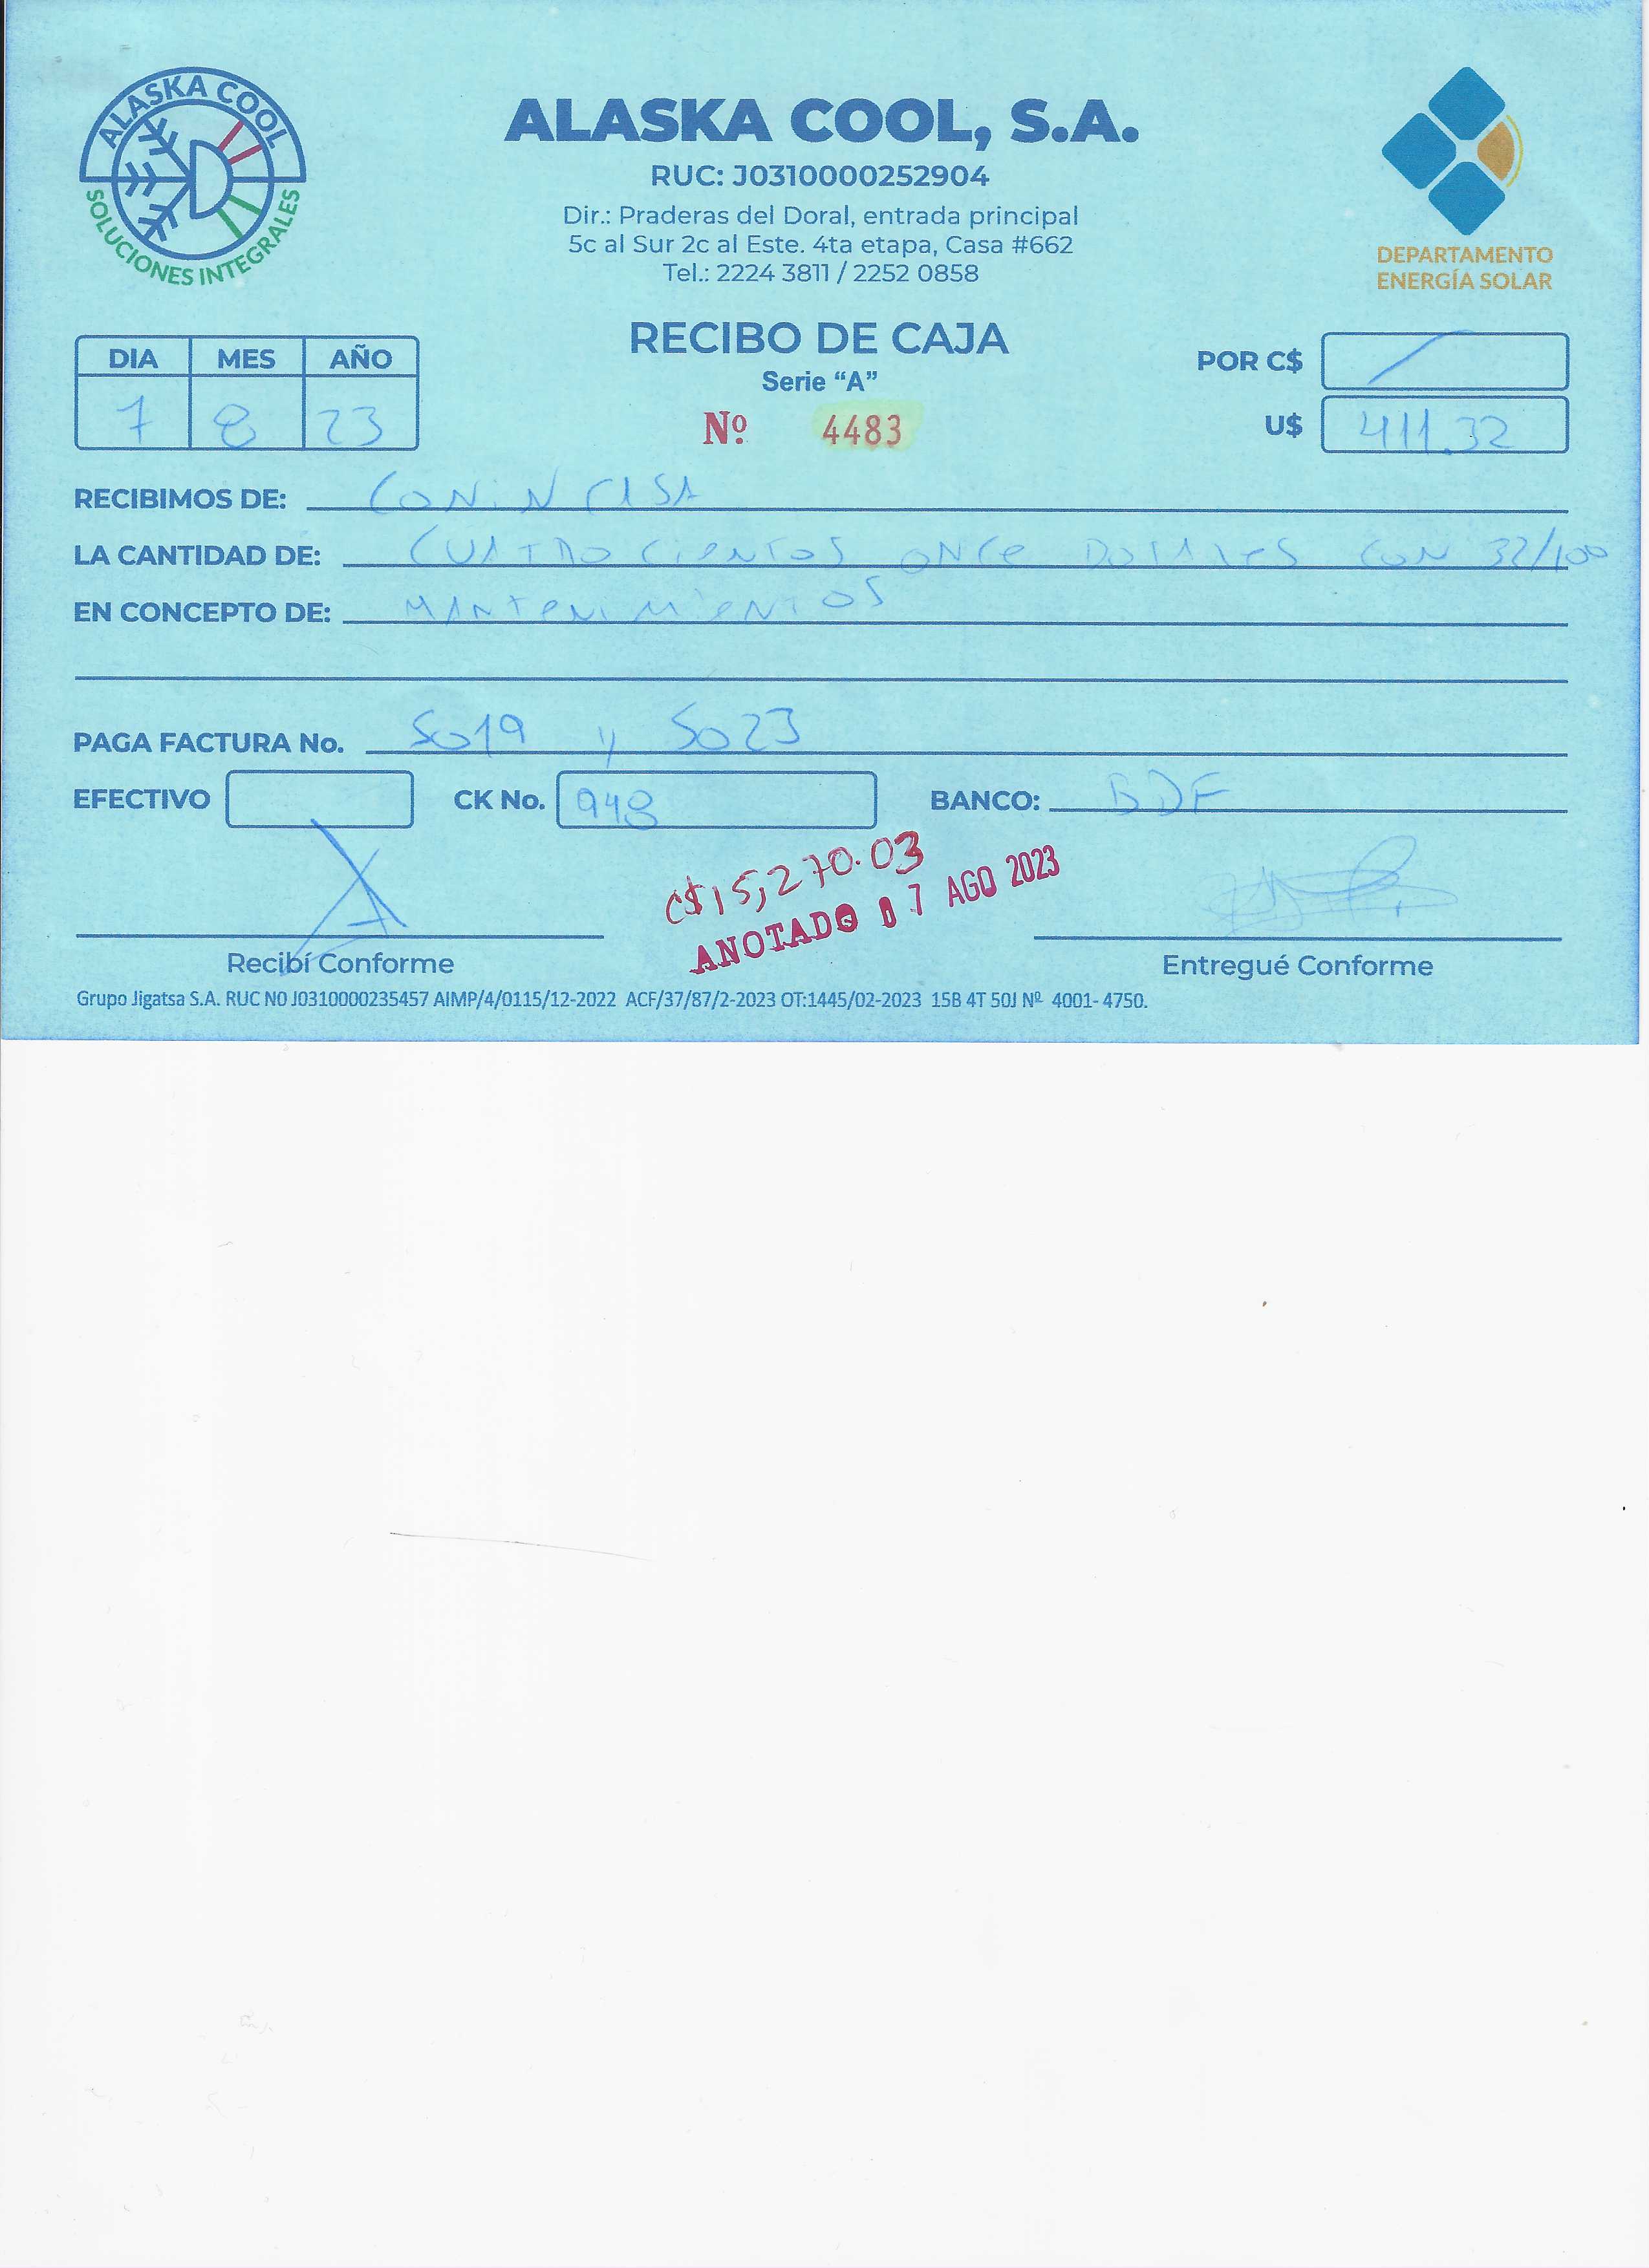 ALASKA COOL
SOLUCIONES INTEGRALES
ALASKA COOL, S.A.
RUC: J0310000252904
Dir.: Praderas del Doral, entrada principal
5c al Sur 2c al Este. 4ta etapa, Casa #662
Tel.: 2224 3811 / 2252 0858
DEPARTAMENTO
ENERGÍA SOLAR
RECIBO DE CAJA
Serie “A”
Nº 4483
DIA MES AÑO
7 8 23
POR C$ /
U$ 411.32
RECIBIMOS DE: CONINCASA
LA CANTIDAD DE: CUATROCIENTOS ONCE DOLARES CON 32/100
EN CONCEPTO DE: MANTENIMIENTOS
PAGA FACTURA No. 5019 y 5023
EFECTIVO CK No. 948 BANCO: BDF
C$15,270.03
ANOTADO 07 AGO 2023
Recibí Conforme Entregué Conforme
Grupo Jigatsa S.A. RUC N0 J0310000235457 AIMP/4/0115/12-2022 ACF/37/87/2-2023 OT:1445/02-2023 15B 4T 50J Nº 4001- 4750.